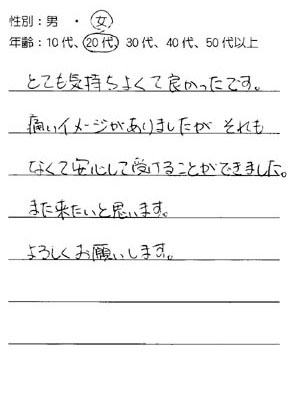 性別：男　・　女
年齢：10代、20代、30代、40代、50代以上
とても気持ちよくて良かったです。
痛いイメージがありましたが それも
なくて安心して受けることができました。
また来たいと思います。
よろしくお願いします。